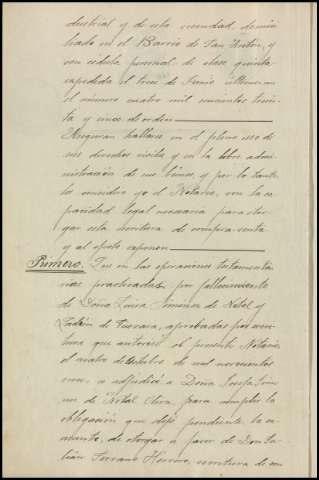 dustrial y de esta vecindad, domici-
liado en el Barrio de San Antón, y
con cédula personal de clase quinta
expedida el trece de Junio último con
el número cuatro mil cuarenta
ta y cinco de orden
Aseguran hallarse en el pleno uso de
sus derechos civiles y en la libre admi-
nistración de sus bienes, y por lo tanto
les considero yo el Notario, con la ca-
pacidad legal necesaria para otor-
gar esta escritura de compra-venta
y al efecto exponen
Primero. Que en las operaciones testamenta-
rias practicadas por fallecimiento
de Doña Luisa Jiménez de Notal y
de Guevara, aprobadas por escri-
tura que autorizó el presente Notario
el cuatro de Octubre de mil novecientos
once, se adjudicó a Doña Josefa Jimé-
nez de Notal Oliva para cumplir la
obligación que dejó pendiente la cau-
sante, de otorgar a favor de Don Ju-
lián Serrano Herrero, escritura de com-